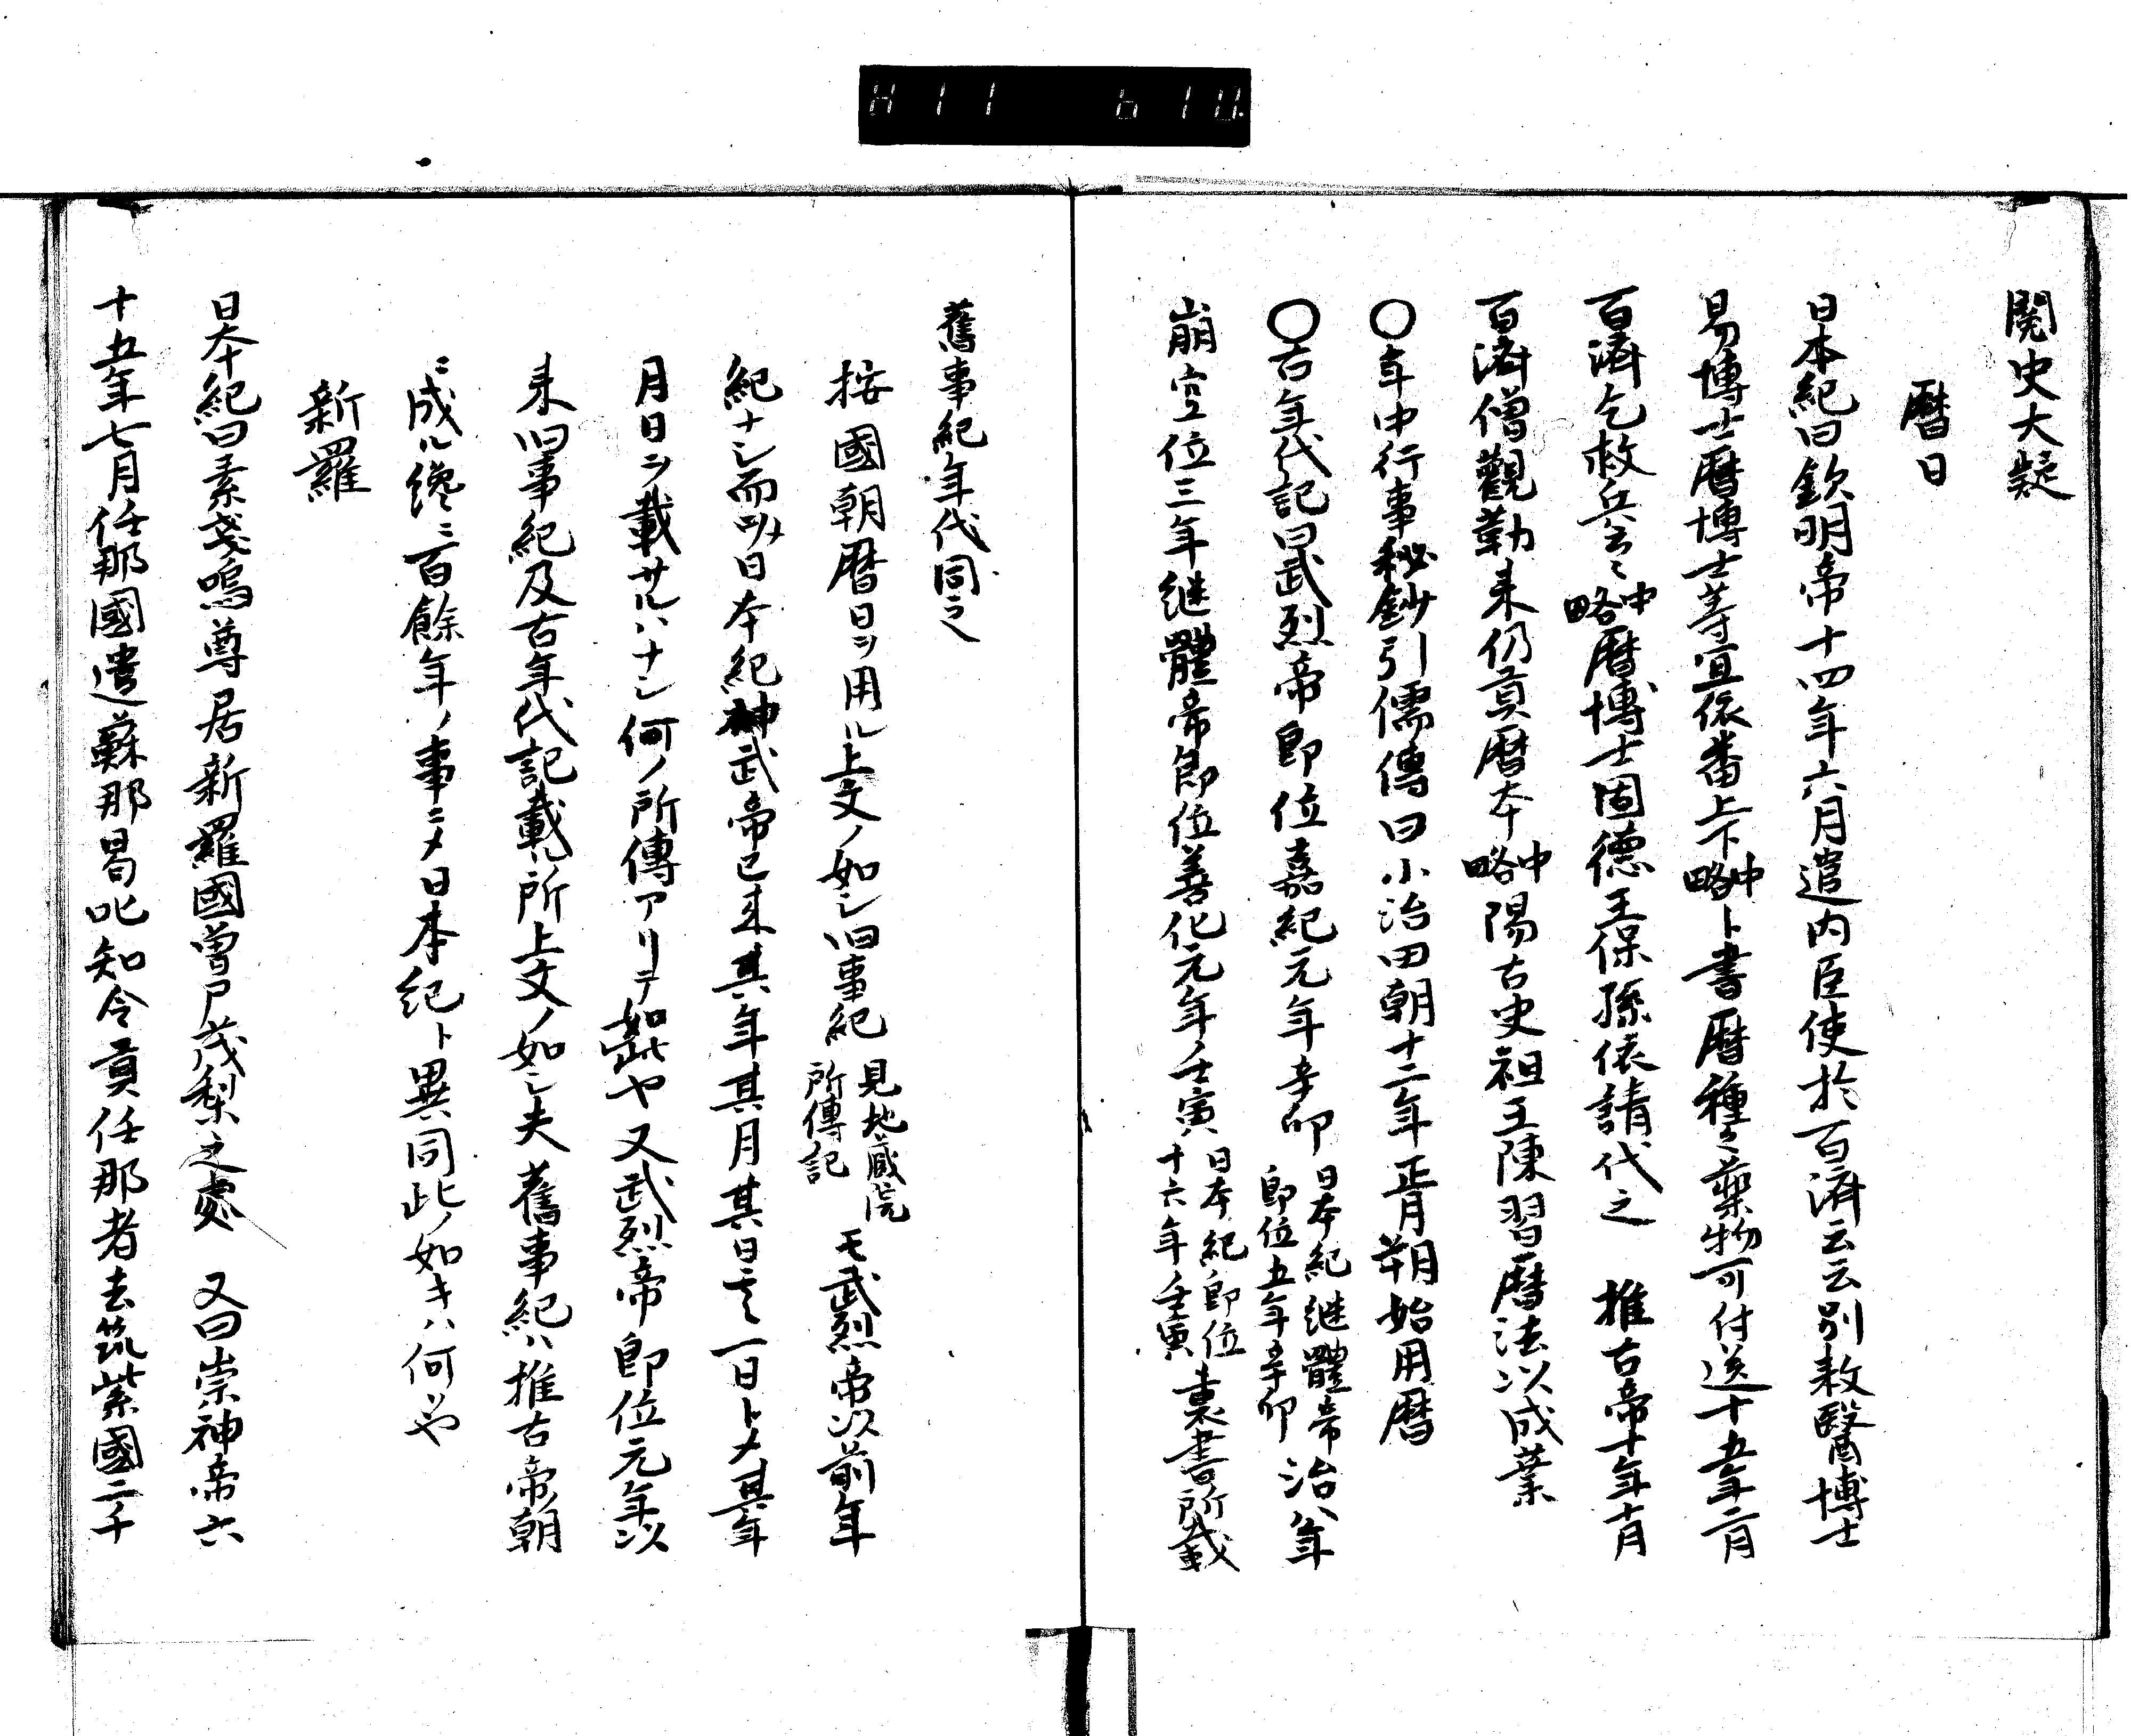 閲史大疑
暦日
日本紀曰欽明帝十四年六月遣内臣使於百済云云別敕醫博士
易博士暦博士等宜依番上下中略卜書暦種〻藥物可付送十五年二月
百濟乞救兵云〻中略暦博士固德王保孫依請代之 推古帝十年十月
百濟僧觀勒来仍貢暦本中略陽古史祖王陳習暦法以成業
〇年中行事秘鈔引儒傳曰小治田朝十二年正月朔始用暦
〇古年代記曰武烈帝即位嘉紀元年辛卯日本紀継體帝即位五年辛卯治八年
崩空位三年継體帝即位善化元年壬寅日本紀即位十六年壬寅裏書所載
舊事紀年代同之
按國朝暦日ヲ用ル上文ノ如シ旧事紀見地蔵院所傳記モ武烈帝以前年
紀ナシ而ルメ日本紀神武帝已来其年其月其日云〻一日トメ其年
月日ヲ載サルハナシ何ノ所傳アリテ如此ヤ又武烈帝即位元年以
来旧事紀及古年代記載ル所上文ノ如シ夫舊事紀ハ推古帝ノ朝
ニ成ル纔ニ百餘年ノ事ニメ日本紀ト異同此ノ如キハ何ソヤ
新羅
日本紀曰素戔嗚尊居新羅國曽尸茂梨之處 又曰崇神帝六
十五年七月任那國遣蘇那曷叱知令貢任那者去筑紫國二千
H11 610.